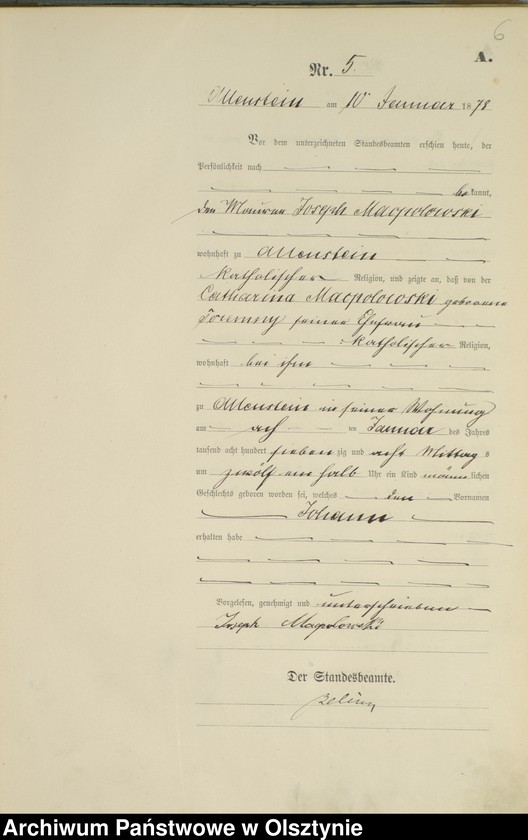 6
A.
Nr. 5.
Allenstein am 10 Januar 1878
Vor dem unterzeichneten Standesbeamten erschien heute, der
Persönlichkeit nach
bekannt,
den Maurer Joseph Macpolowski
wohnhaft zu Allenstein
katholischer Religion, und zeigte an, daß von der
Catharina Macpolowski geborene
seiner Ehefrau
katholischer Religion,
wohnhaft bei ihm
zu Allenstein in seiner Wohnung
am ach ten Januar des Jahres
tausend acht hundert siebenzig und acht Mittags
um zwölf ein halb Uhr ein Kind männlichen
Geschlechts geboren worden sei, welches den Vornamen
Johann
erhalten habe
Vorgelesen, genehmigt und unterschrieben
Joseph Macpolowski
Der Standesbeamte.
Archiwum Państwowe w Olsztynie